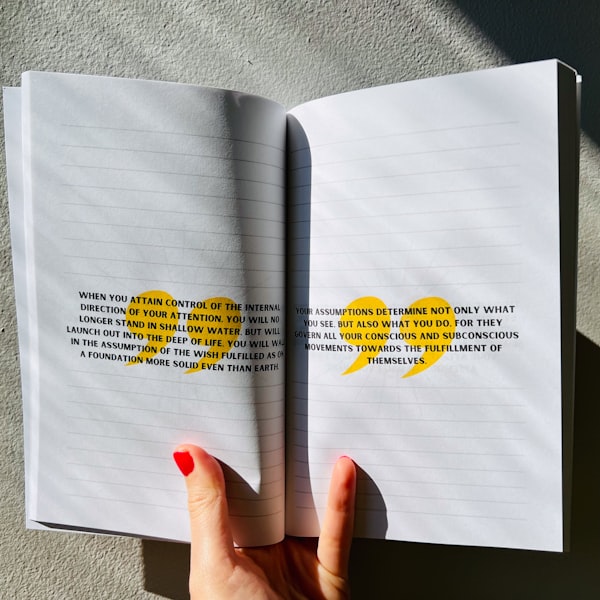 WHEN YOU ATTAIN CONTROL OF THE INTERNAL
DIRECTION OF YOUR ATTENTION, YOU WILL NO
LONGER STAND IN SHALLOW WATER, BUT WILL
LAUNCH OUT INTO THE DEEP OF LIFE. YOU WILL
IN THE ASSUMPTION OF THE WISH FULFILLED AS
A FOUNDATION MORE SOLID EVEN THAN EARTH.
YOUR ASSUMPTIONS DETERMINE NOT ONLY WHAT
YOU SEE, BUT ALSO WHAT YOU DO, FOR THEY
GOVERN ALL YOUR CONSCIOUS AND SUBCONSCIOUS
MOVEMENTS TOWARDS THE FULFILLMENT OF
THEMSELVES.